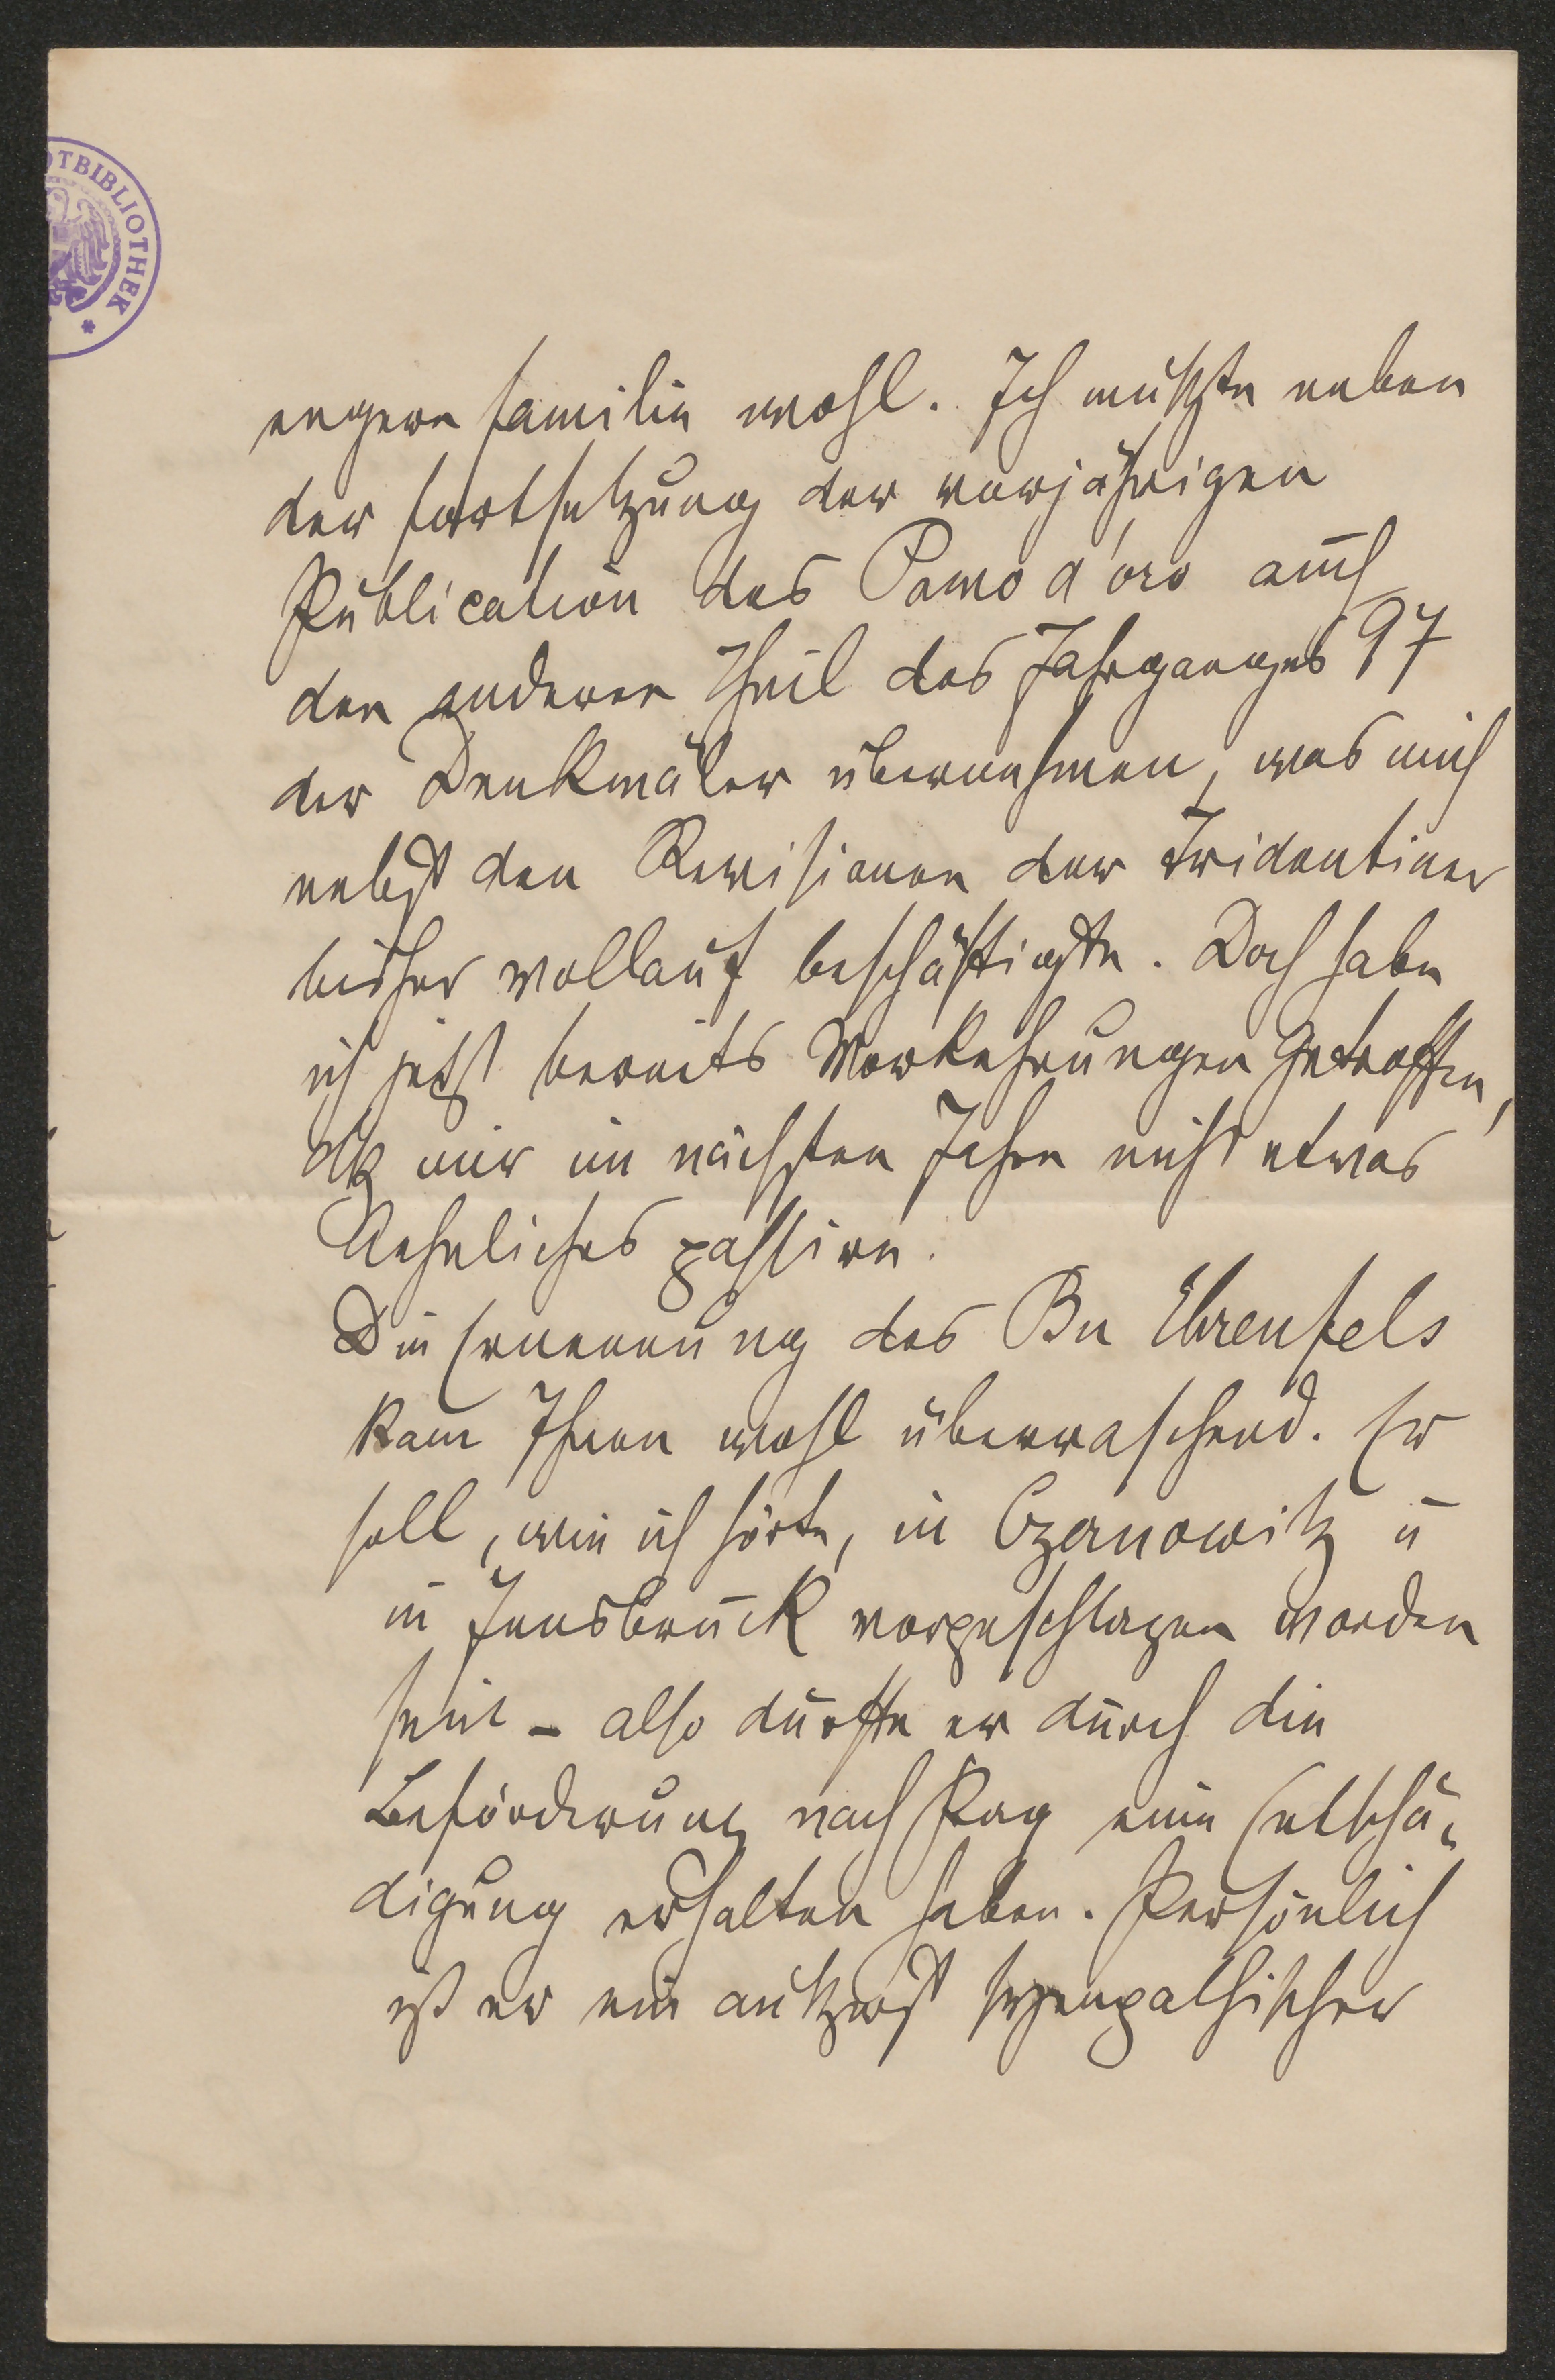 OTBIBLIOTHEK *
engere Familie wohl. Ich mußte neben
der Fortsetzung der vorjährigen
Publication des Pomo d'oro auch
den anderen Theil des Jahrganges 97
der Denkmäler übernehmen, was mich
nebst den Revisionen der Tridentiner
bisher vollauf beschäftigte. Doch habe
ich jetzt bereits Vorkehrungen getroffen,
dß mir im nächsten Jahre nicht etwas
Aehnliches passire.
Die Ernennung des Bn Ehrenfels
kam Ihnen wohl überraschend. Er
soll, wie ich hörte, in Czernowitz u
in Innsbruck vorgeschlagen worden
sein – also dürfte er durch die
Beförderung nach Prag eine Entschä-
digung erhalten haben. Persönlich
ist er ein äußerst sympathischer